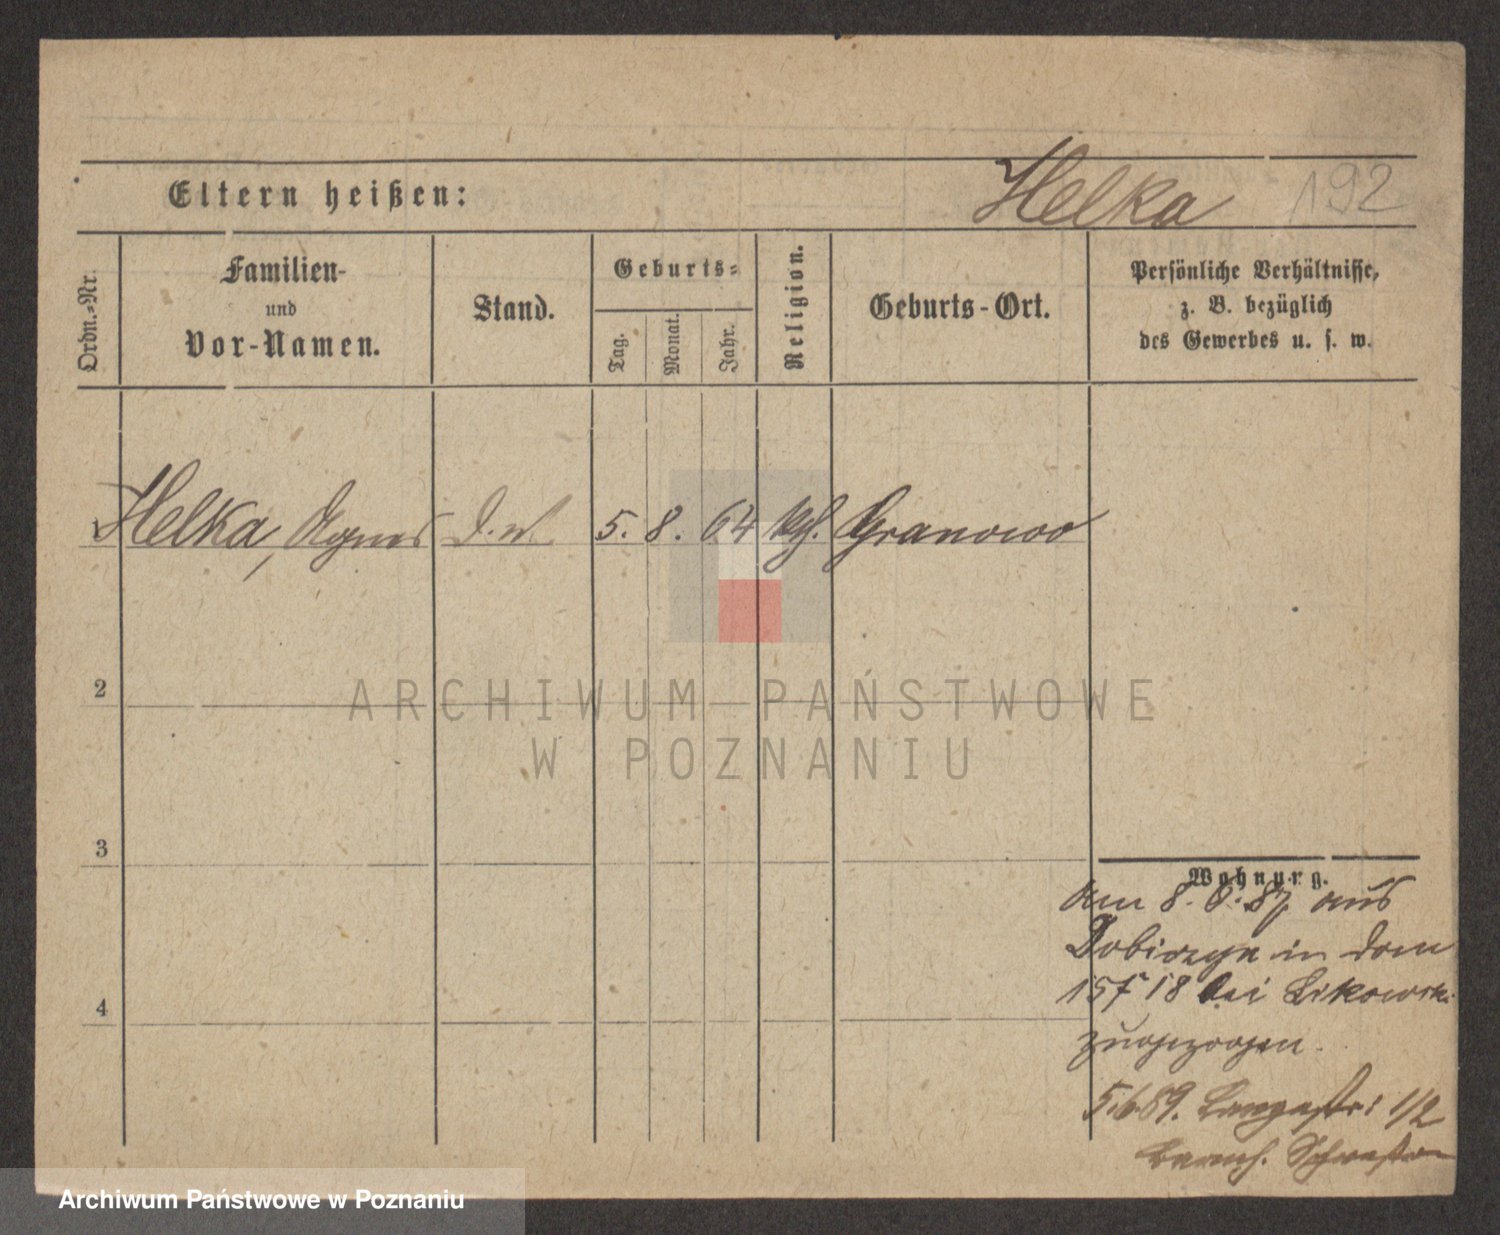 Eltern heißen:
Helka 192
Ordn.=Nr.
Familien-
und
Vor-Namen.
Stand.
Geburts=
Tag.
Monat.
Jahr.
Religion.
Geburts-Ort.
Persönliche Verhältnisse,
z. B. bezüglich
des Gewerbes u. s. w.
1 Helka, Agnes 5. 8. 64 kth. Granowo
2
ARCHIWUM PAŃSTWOWE
W POZNANIU
3
Wohnung.
am 8. 6. 87 aus
in Dom
18 bei Likowski
zugezogen.
5.6.89. Langestr: 1/2
barmh. Schwestern
4
Archiwum Państwowe w Poznaniu